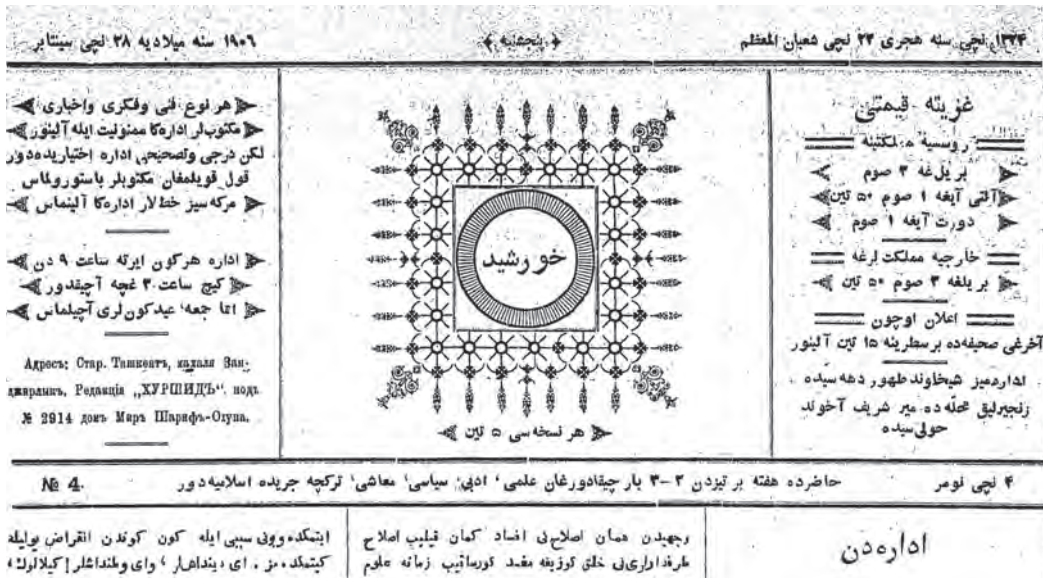 ۱۳۲۴ نچی سنه هجری ۲۳ نچی شعبان المعظم
پنجشنبه
۱۹۰۶ سنه میلادیه ۲۸ نچی سینتابر
غزیته قیمتی
روسیه مملکتینه
بر یلغه ۳ صوم
آلتی آیغه ۱ صوم ۵۰ تین
دورت آیغه ۱ صوم
خارجیه مملکت لرغه
بر یلغه ۳ صوم ۵۰ تین
اعلان اوچون
آخرغی صحیفه ده بر سطرینه ۱۵ تین آلینور
اداره میز شیخاوند طهور دهه سیده
زنجیرلیق محلّه ده میر شریف آخوند
حولی سیده
خورشید
هر نسخه سی ۵ تین
هر نوع فنی وفکری واخباری
مکتوب لر اداره کا ممنونیت ایله آلینور
لکن درجی وتصحیحی اداره اختیاریده دور
قول قویلمغان مکتوبلر باستورولماس
مرکه سیز خط لار اداره کا آلینماس
اداره هر کون ایرته ساعت ۹ دن
کیچ ساعت ۳ غچه آچیقدور
اما جمعه، عید کون لری آچیلماس
Адресъ: Стар. Ташкентъ, махаля Зан-
джирлыкъ, Редакція „ХУРШИДЪ“, подъ
№ 2914 домъ Миръ Шарифъ-Охуна.
۴ نچی نومر
حاضرده هفته بر تیزدن ۲–۳ بار چیقادورغان علمی، ادبی، سیاسی، معاشی، ترکچه جریده اسلامیه دور
№ 4.
اداره دن
وجهیدن همان اصلاح نی افساد کمان قیلیب اصلاح
طرفداری نی خلق کوزیغه مفسد کورساتیب زمانه علوم
ایتمکده وبونی سببی ایله کون کوندن انقراض یولیله
کیتمکده میز. ای دینداشلر، وای وطنداشلر!